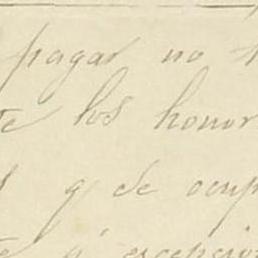 pagar no
te los honor
q de ocup
te q' excepcion